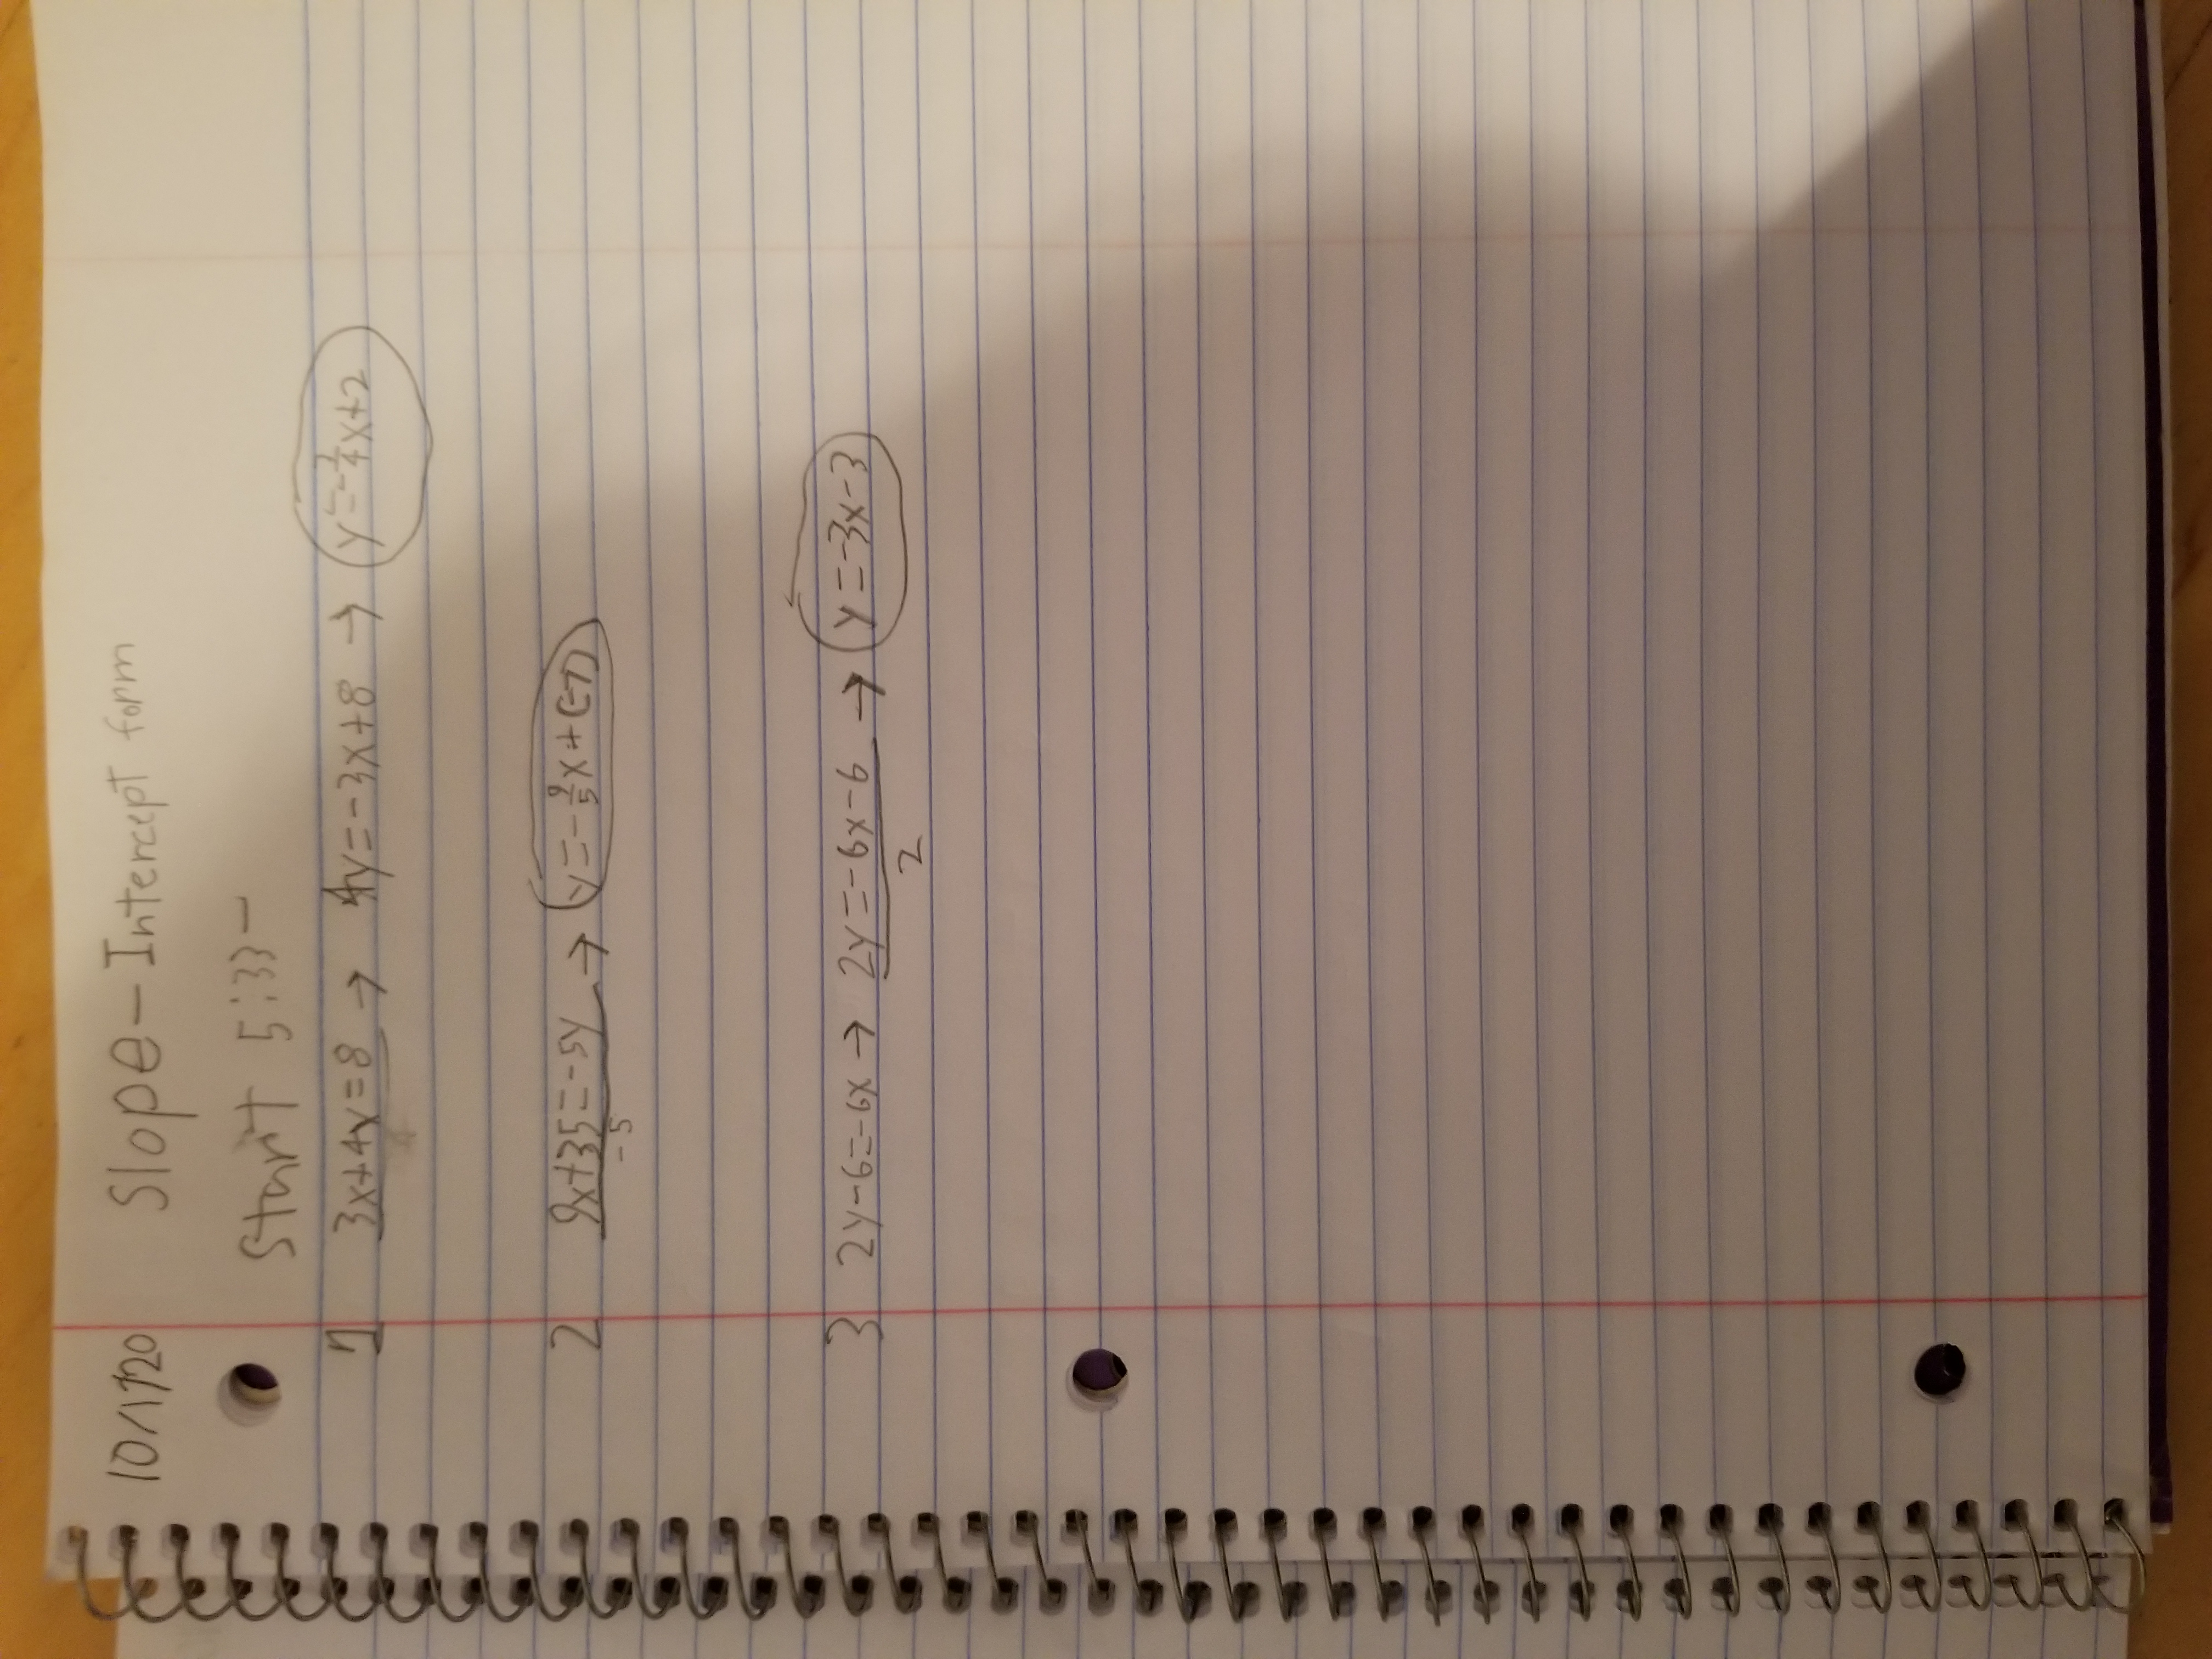 10/1/20 Slope-Intercept form
Start 5:33-
1 3x+4y=8 → 4y=-3x+8 → y=-3/4x+2
2 9x+35=-5y → y=-9/5x+(-7)
-5
3 2y-6=-6x → 2y=-6x-6 → y=-3x-3
2